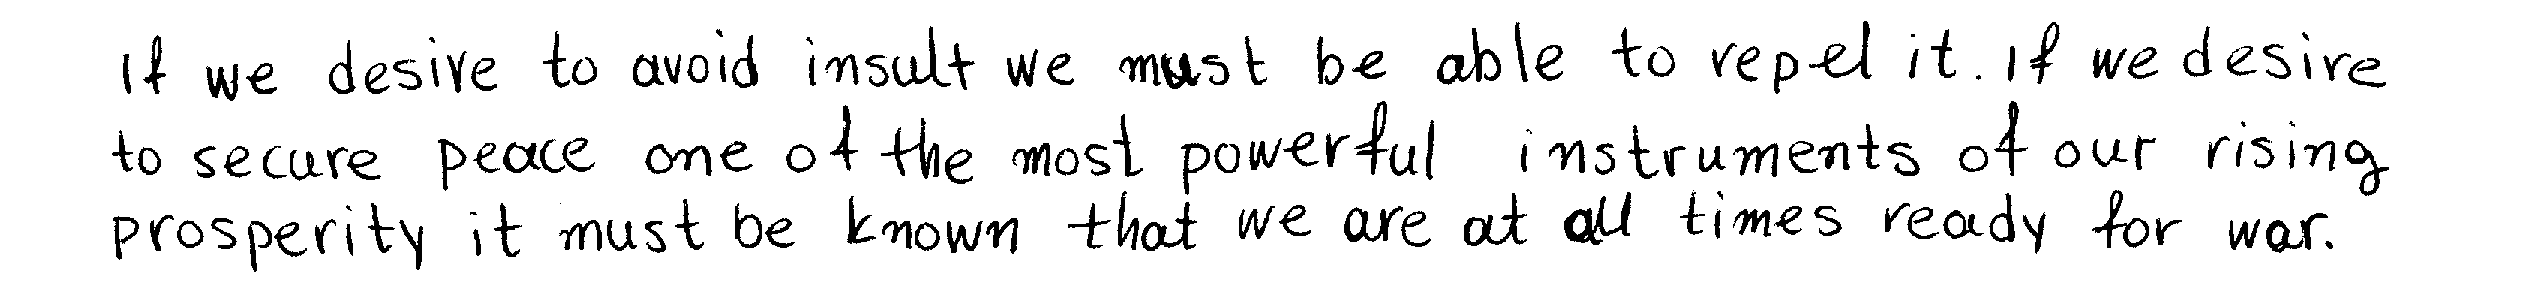 If we desire to avoid insult we must be able to repel it. If we desire
to secure peace one of the most powerful instruments of our rising
prosperity it must be known that we are at all times ready for war.